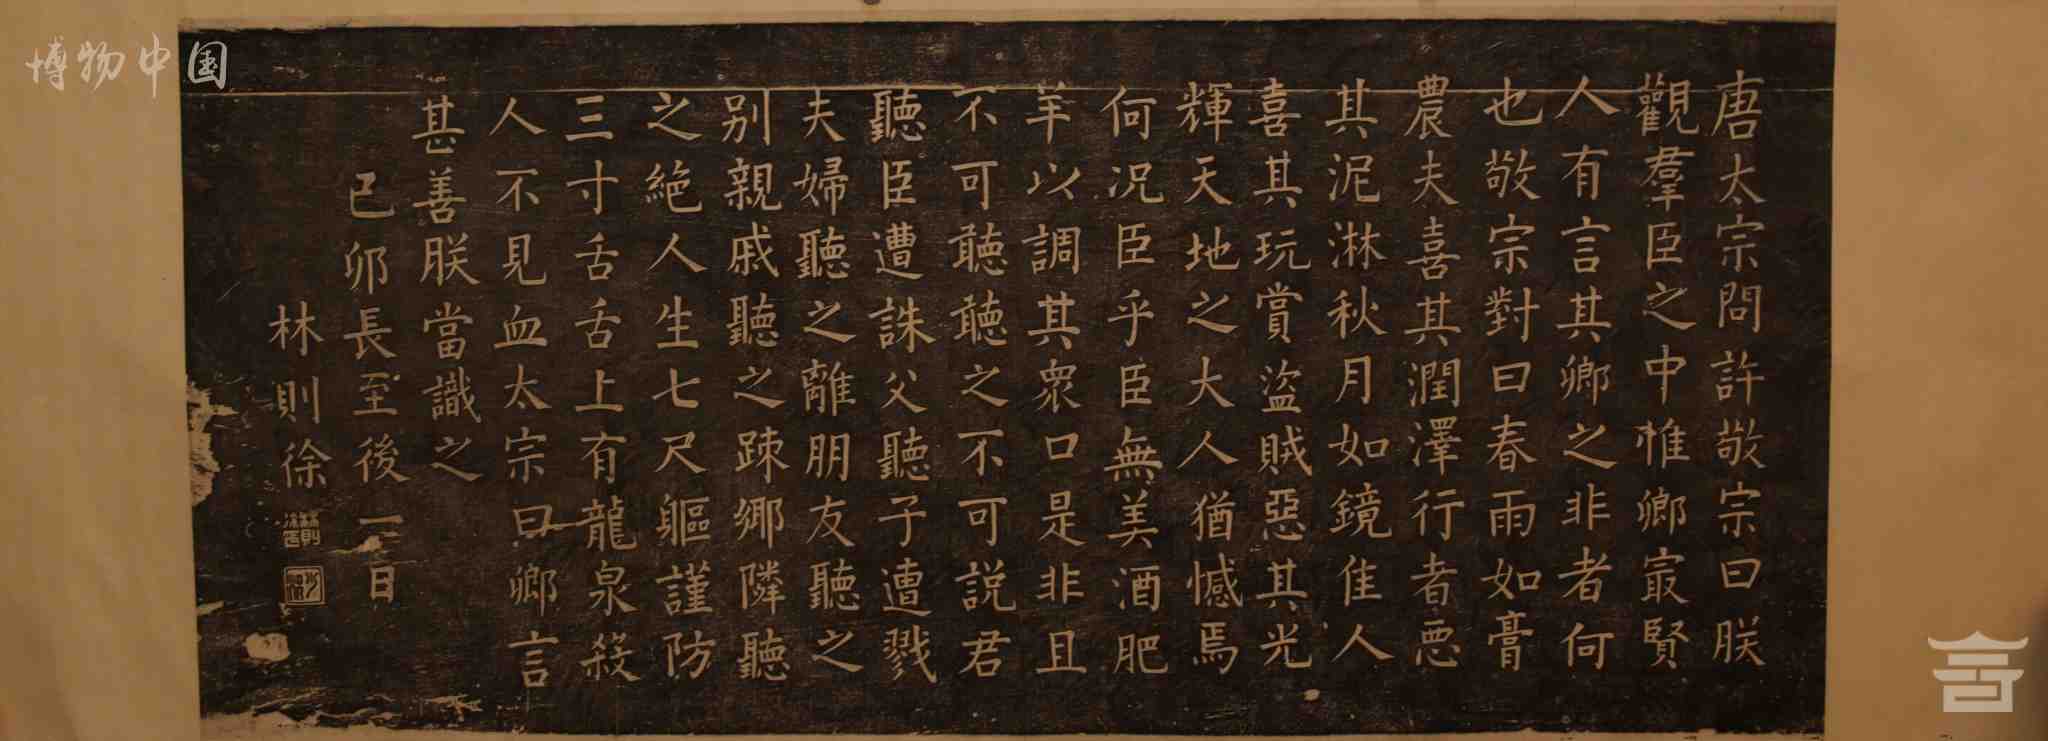 博物中国
唐太宗問許敬宗曰朕
觀羣臣之中惟卿冣賢
人有言其卿之非者何
也敬宗對曰春雨如膏
農夫喜其潤澤行者恶
其泥淋秋月如鏡佳人
喜其玩賞盜賊惡其光
輝天地之大人猶憾焉
何況臣乎臣無美酒肥
羊以調其衆口是非且
不可聽聽之不可説君
聽臣遭誅父聽子遭戮
夫婦聽之離朋友聽之
别親戚聽之踈鄉隣聽
之絶人生七尺軀謹防
三寸舌舌上有龍泉殺
人不見血太宗曰卿言
甚善朕當識之
己卯長至後一日
林則徐